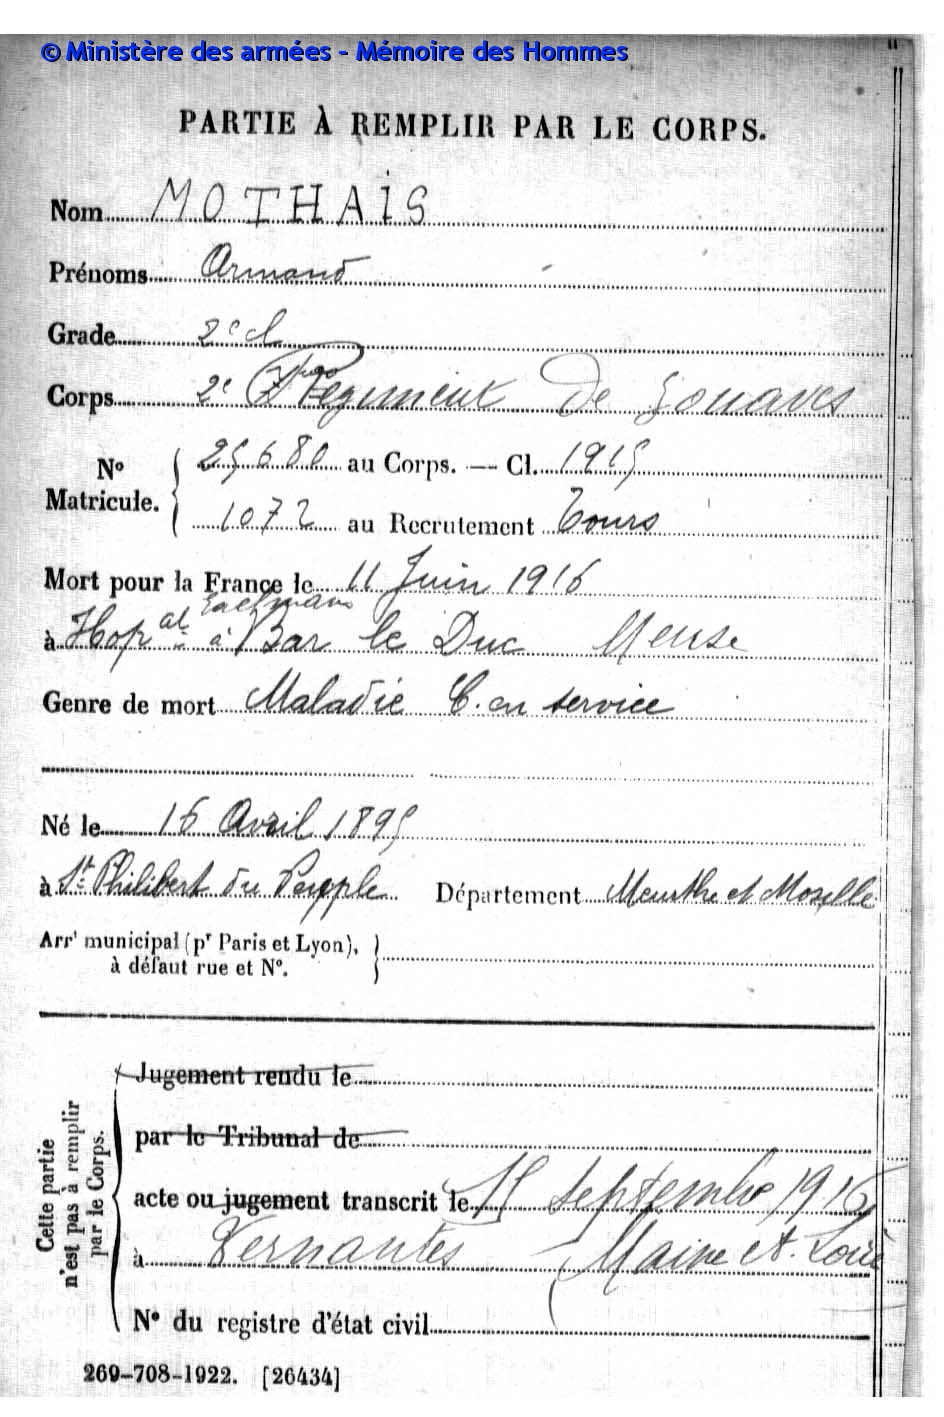 © Ministère des armées - Mémoire des Hommes
PARTIE À REMPLIR PAR LE CORPS.
Nom MOTHAIS
Prénoms Armand
Grade 2e cl
Corps 2e Régiment de Zouaves
No Matricule. { 25680 au Corps. — Cl. 1915
1072 au Recrutement Tours
Mort pour la France le 11 Juin 1916
à Hopal à Bar le Duc Meuse
Genre de mort Maladie C. en service
Né le 16 Avril 1895
à St Philibert du Peuple Département Meurthe et Moselle
Arrt municipal (pr Paris et Lyon),
à défaut rue et No.
Cette partie n'est pas à remplir par le Corps.
Jugement rendu le
par le Tribunal de
acte ou jugement transcrit le 15 Septembre 1916
à Vernantes Maine et Loire
No du registre d'état civil
269-708-1922. [26434]